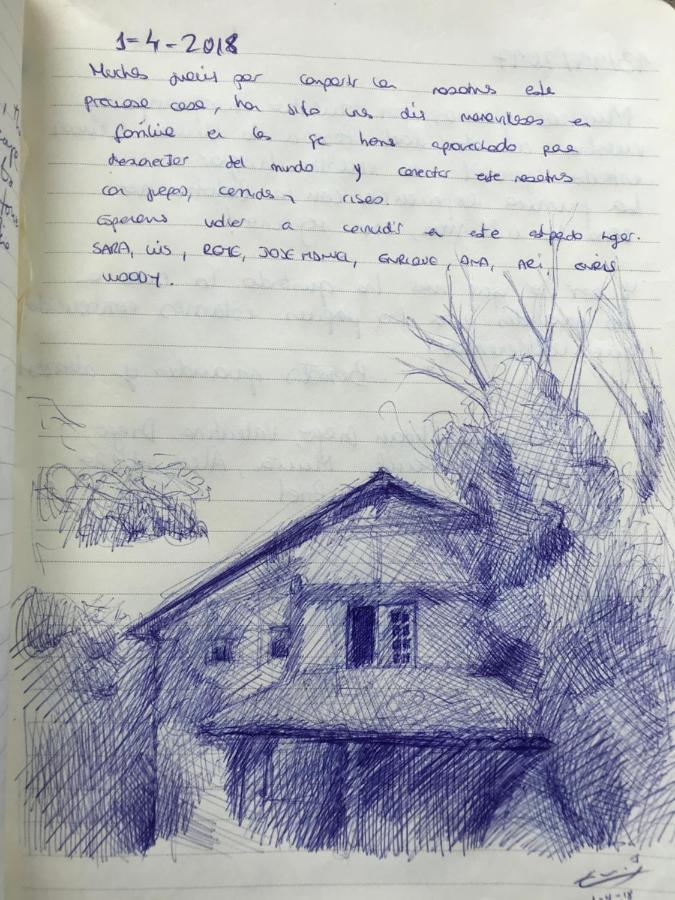 1-4-2018
Muchas gracias por compartir con nosotros este
preciosa casa, han sido unos días maravillosos en
familia en los que hemos aprovechado para
desconectar del mundo y conectar entre nosotros
con juegos, comidas y risas.
Esperamos volver a coincidir en este estupendo lugar.
SARA, LUIS, ROTE, JOSE MANUEL, ENRIQUE, ANA, ARI, CHRIS
WOODY.
1-4-18